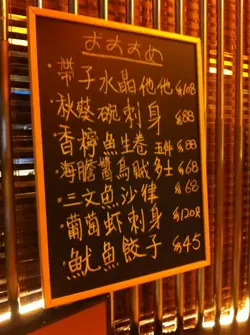 おすすめ
・帶子水晶他他 $108
・秋葵碗刺身 $88
・香檸魚生卷 五件 $88
・海膽醬烏賊多士 $68
・三文魚沙律 $68
・葡萄虾刺身 $120
・魷魚餃子 $45